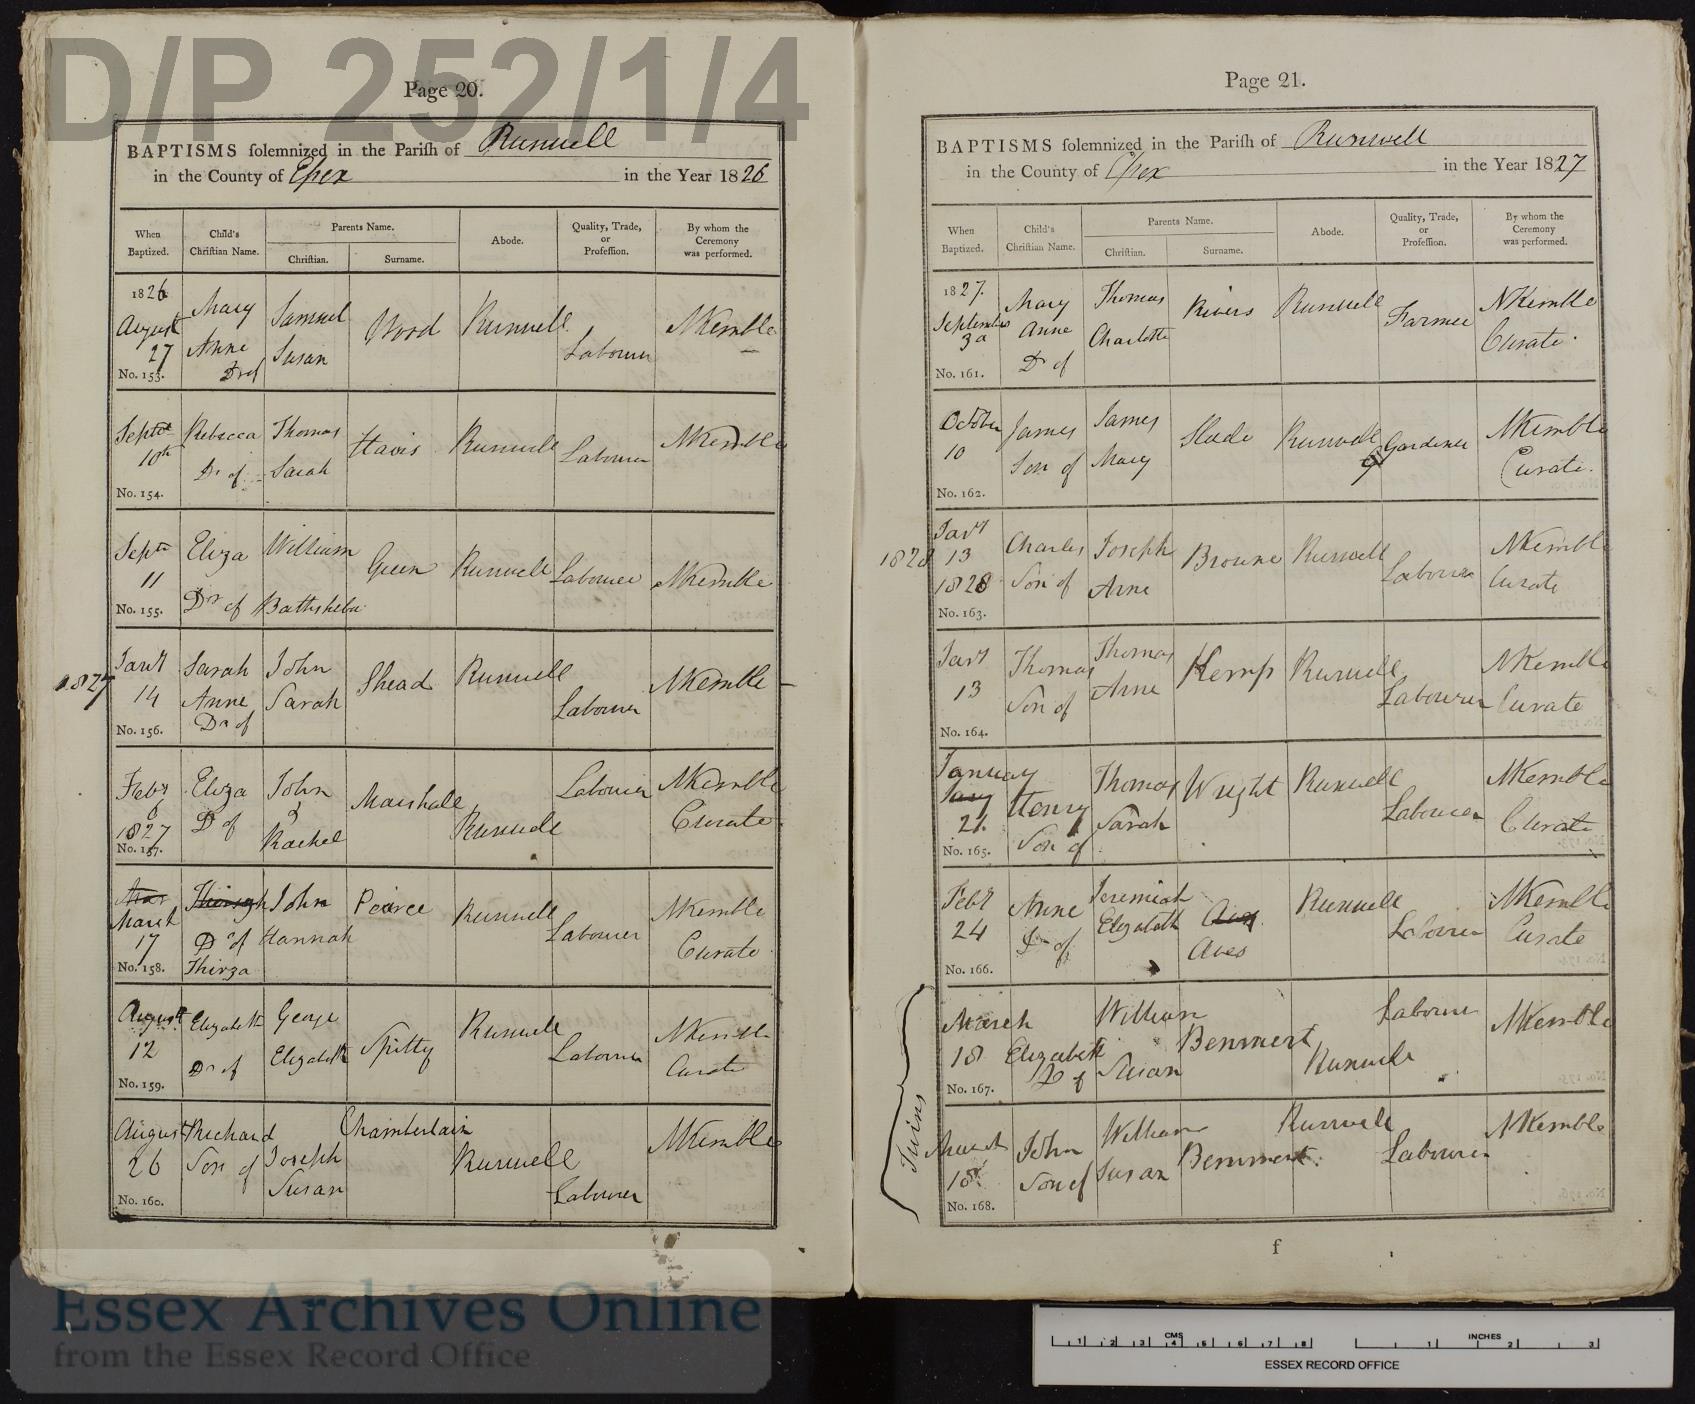 D/P 252/1/4
Page 20.
BAPTISMS solemnized in the Parish of Runwell
in the County of Essex in the Year 1826
When Baptized. Child's Christian Name. Parents Name. Christian. Surname. Abode. Quality, Trade, or Profession. By whom the Ceremony was performed.
1826 August 27 No. 153. Mary Anne Dr of Samuel Susan Wood Runwell Labourer NKemble
Septr 10th No. 154. Rebecca Dr of Thomas Sarah Havis Runwell Labourer NKemble
Septr 11 No. 155. Eliza Dr of William Bathsheba Green Runwell Labourer NKemble
1827 Jany 14 No. 156. Sarah Anne Dr of John Sarah Shead Runwell Labourer NKemble
Feby 6 1827 No. 157. Eliza D of John & Rachel Marshall Runwell Labourer NKemble Curate
March 17 No. 158. Dr of Thirza John Hannah Pearce Runwell Labourer NKemble Curate
August 12 No. 159. Elizabeth Dr of George Elizabeth Spitty Runwell Labourer NKemble Curate
August 26 No. 160. Richard Son of Joseph Susan Chamberlain Runwell Labourer NKemble
Page 21.
BAPTISMS solemnized in the Parish of Runwell
in the County of Essex in the Year 1827
When Baptized. Child's Christian Name. Parents Name. Christian. Surname. Abode. Quality, Trade, or Profession. By whom the Ceremony was performed.
1827. September No. 161. Mary Anne Dr of Thomas Charlotte Rivers Runwell Farmer NKemble Curate.
October 10 No. 162. James Son of James Mary Slade Runwell Gardener NKemble Curate.
1828 Jany 13 1828 No. 163. Charles Son of Joseph Anne Browne Runwell Labourer NKemble Curate
Jany 13 No. 164. Thomas Son of Thomas Anne Kemp Runwell Labourer NKemble Curate
January 21. No. 165. Henry Son of Thomas Sarah Wright Runwell Labourer NKemble Curate
Feby 24 No. 166. Anne Dr of Jeremiah Elizabeth Aves Runwell Labourer NKemble Curate
Twins
March 18 No. 167. Elizabeth D of William Susan Bemment Runwell Labourer NKemble
March 18 No. 168. John Son of William Susan Bemment Runwell Labourer NKemble
f
Essex Archives Online
from the Essex Record Office
CMS 1 2 3 4 5 6 7 8 INCHES 1 2 3
ESSEX RECORD OFFICE